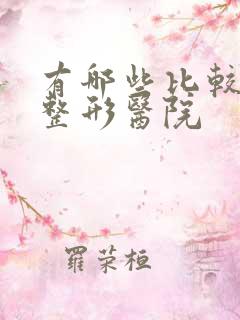 有哪些比较
整形醫院
羅荣桓